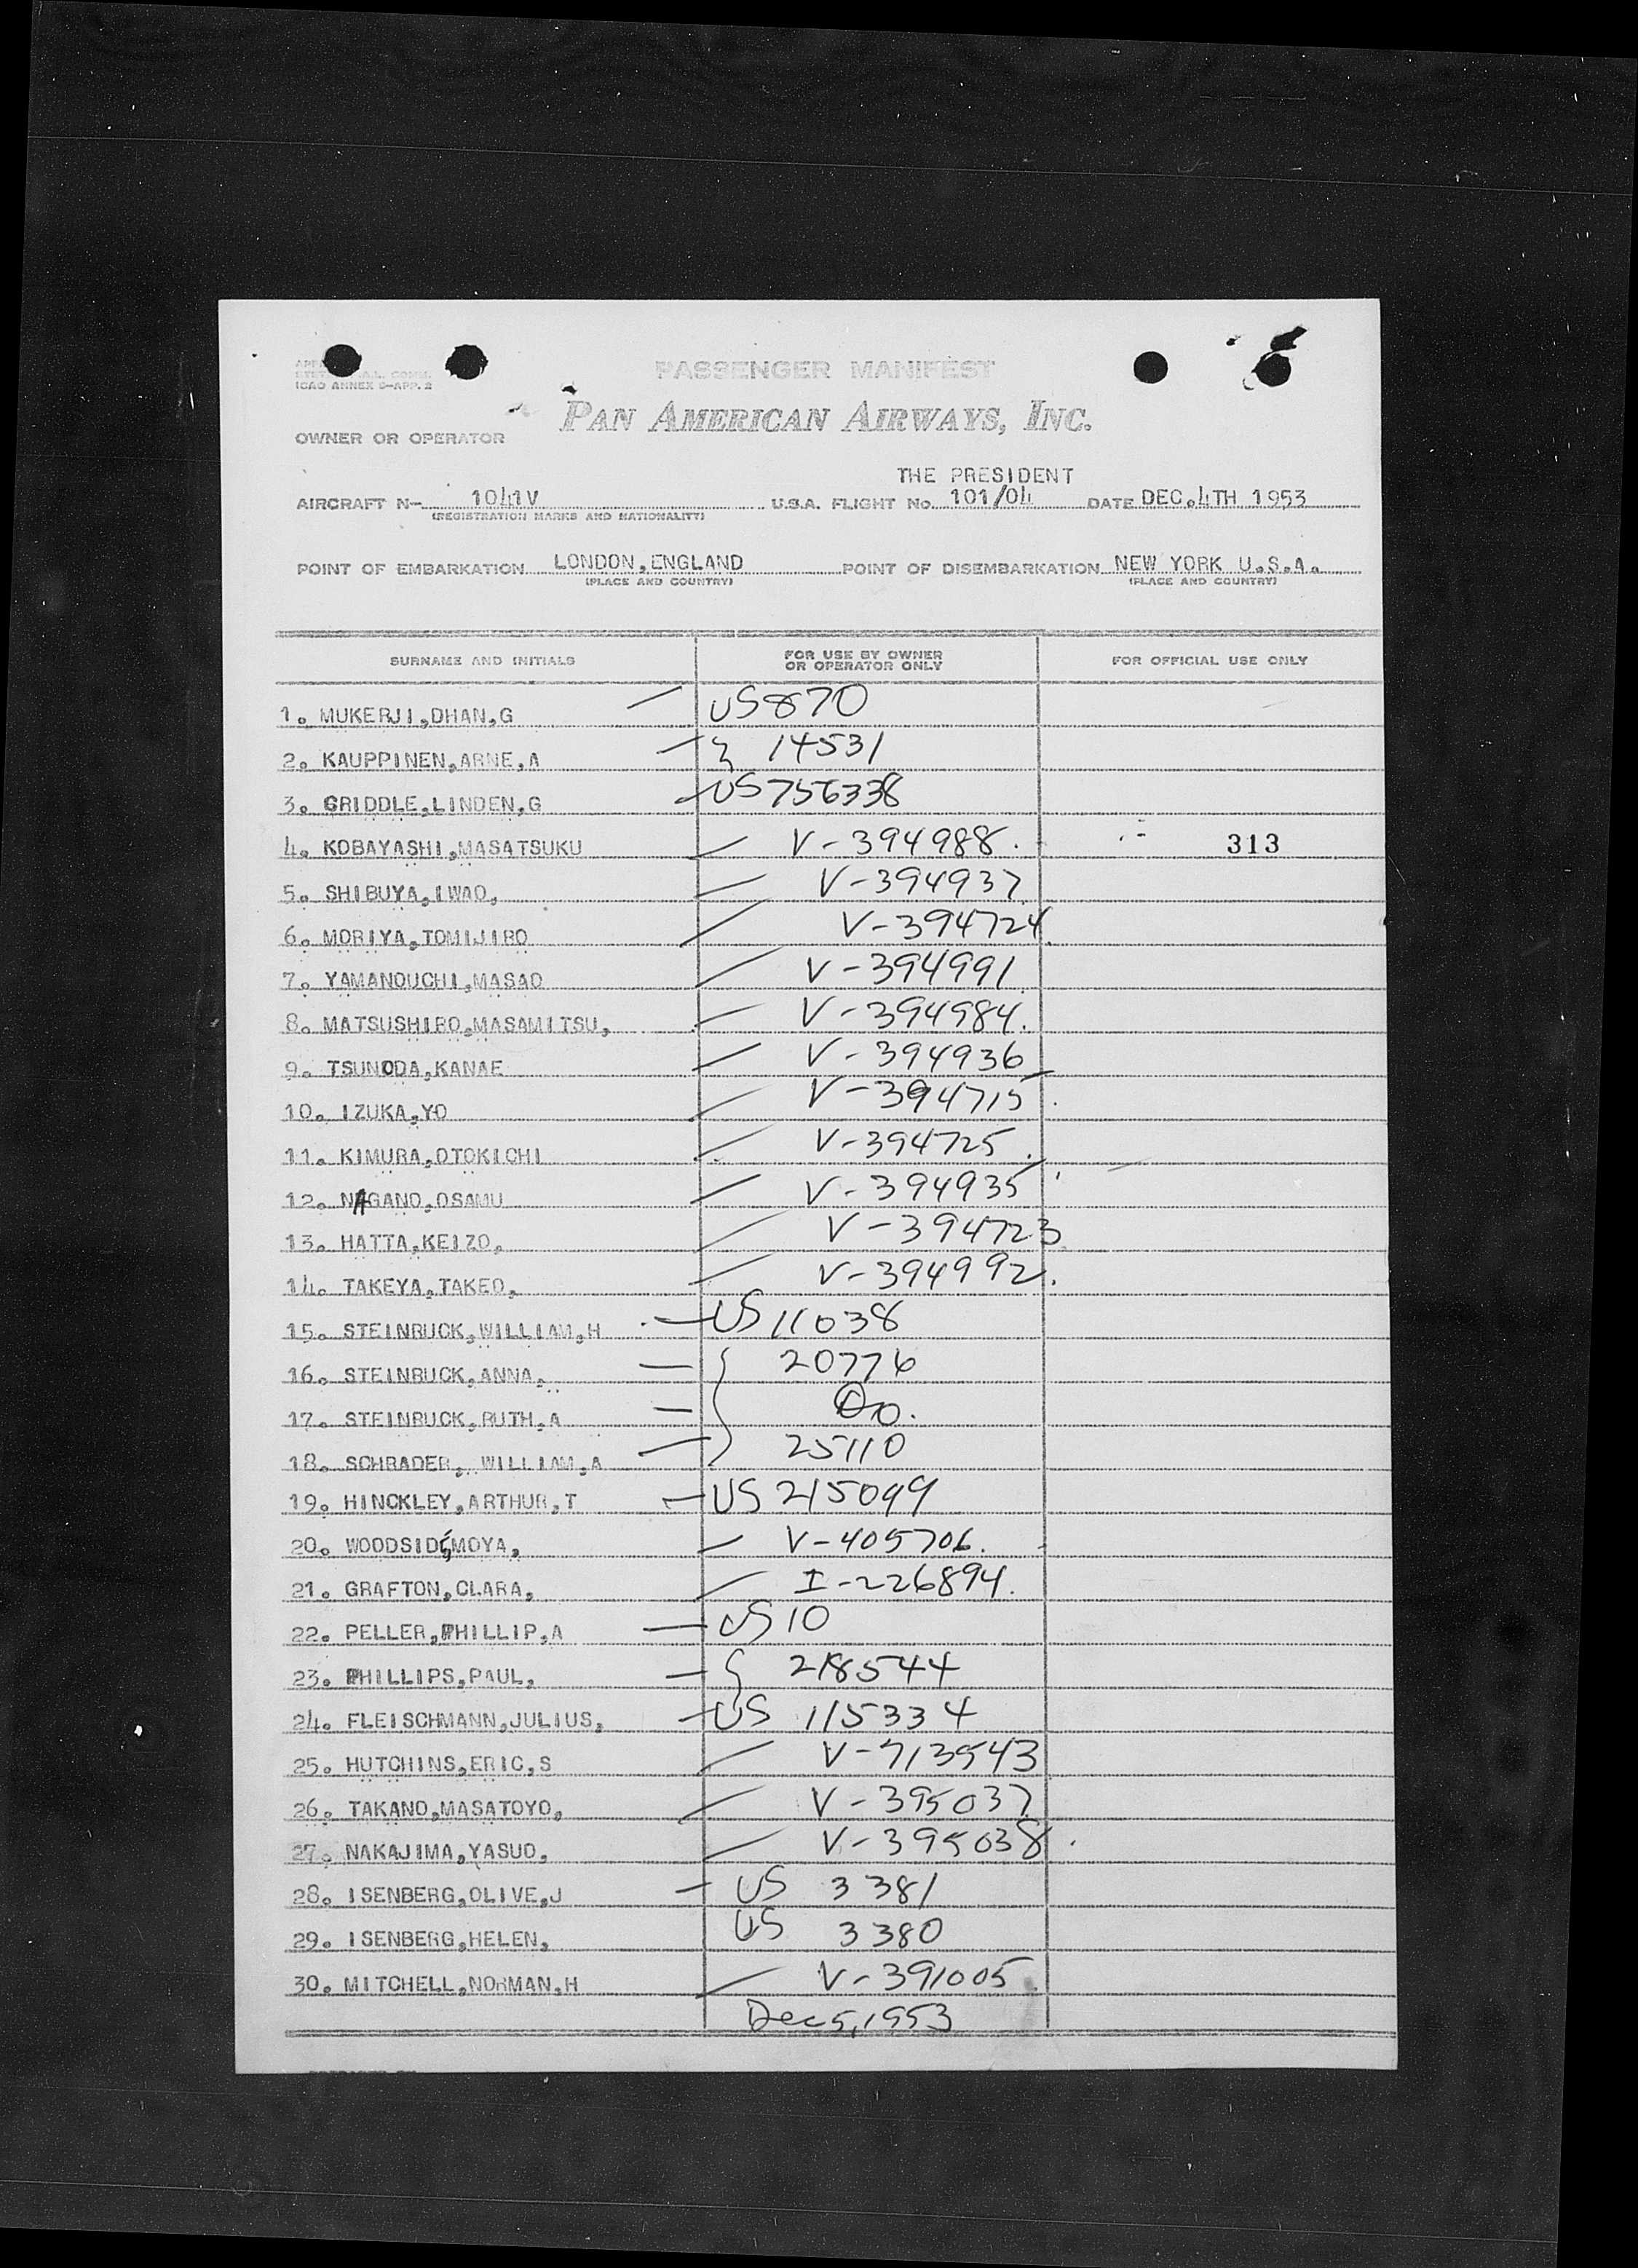 PASSENGER MANIFEST
ICAO ANNEX 9-APP. 2
PAN AMERICAN AIRWAYS, INC.
OWNER OR OPERATOR
THE PRESIDENT
AIRCRAFT N- 1041V U.S.A. FLIGHT No. 101/04 DATE DEC.4TH 1953
(REGISTRATION MARKS AND NATIONALITY)
POINT OF EMBARKATION LONDON,ENGLAND POINT OF DISEMBARKATION NEW YORK U.S.A.
(PLACE AND COUNTRY) (PLACE AND COUNTRY)
SURNAME AND INITIALS FOR USE BY OWNER OR OPERATOR ONLY FOR OFFICIAL USE ONLY
1. MUKERJI,DHAN,G US 870
2. KAUPPINEN,ARNE,A 14531
3. GRIDDLE,LINDEN,G US 756338
4. KOBAYASHI,MASATSUKU V-394988. 313
5. SHIBUYA,IWAO, V-394937
6. MORIYA,TOMIJIRO V-394724
7. YAMANOUCHI,MASAO V-394991
8. MATSUSHIRO,MASAMITSU, V-394984.
9. TSUNODA,KANAE V-394936
10. IZUKA,YO V-394715
11. KIMURA,OTOKICHI V-394725.
12. NAGANO,OSAMU V-394935
13. HATTA,KEIZO, V-394723
14. TAKEYA,TAKEO, V-394992.
15. STEINBUCK,WILLIAM,H US 11038
16. STEINBUCK,ANNA, 20776
17. STEINBUCK,RUTH,A Do.
18. SCHRADER, WILLIAM,A 25110
19. HINCKLEY,ARTHUR,T US 215099
20. WOODSIDE,MOYA, V-405706.
21. GRAFTON,CLARA, I-226894.
22. PELLER,PHILLIP,A US 10
23. PHILLIPS,PAUL, 218544
24. FLEISCHMANN,JULIUS, US 115334
25. HUTCHINS,ERIC,S V-713543
26. TAKANO,MASATOYO, V-395037
27. NAKAJIMA,YASUO, V-395038
28. ISENBERG,OLIVE,J US 3381
29. ISENBERG,HELEN, US 3380
30. MITCHELL,NORMAN,H V-391005
Dec 5, 1953